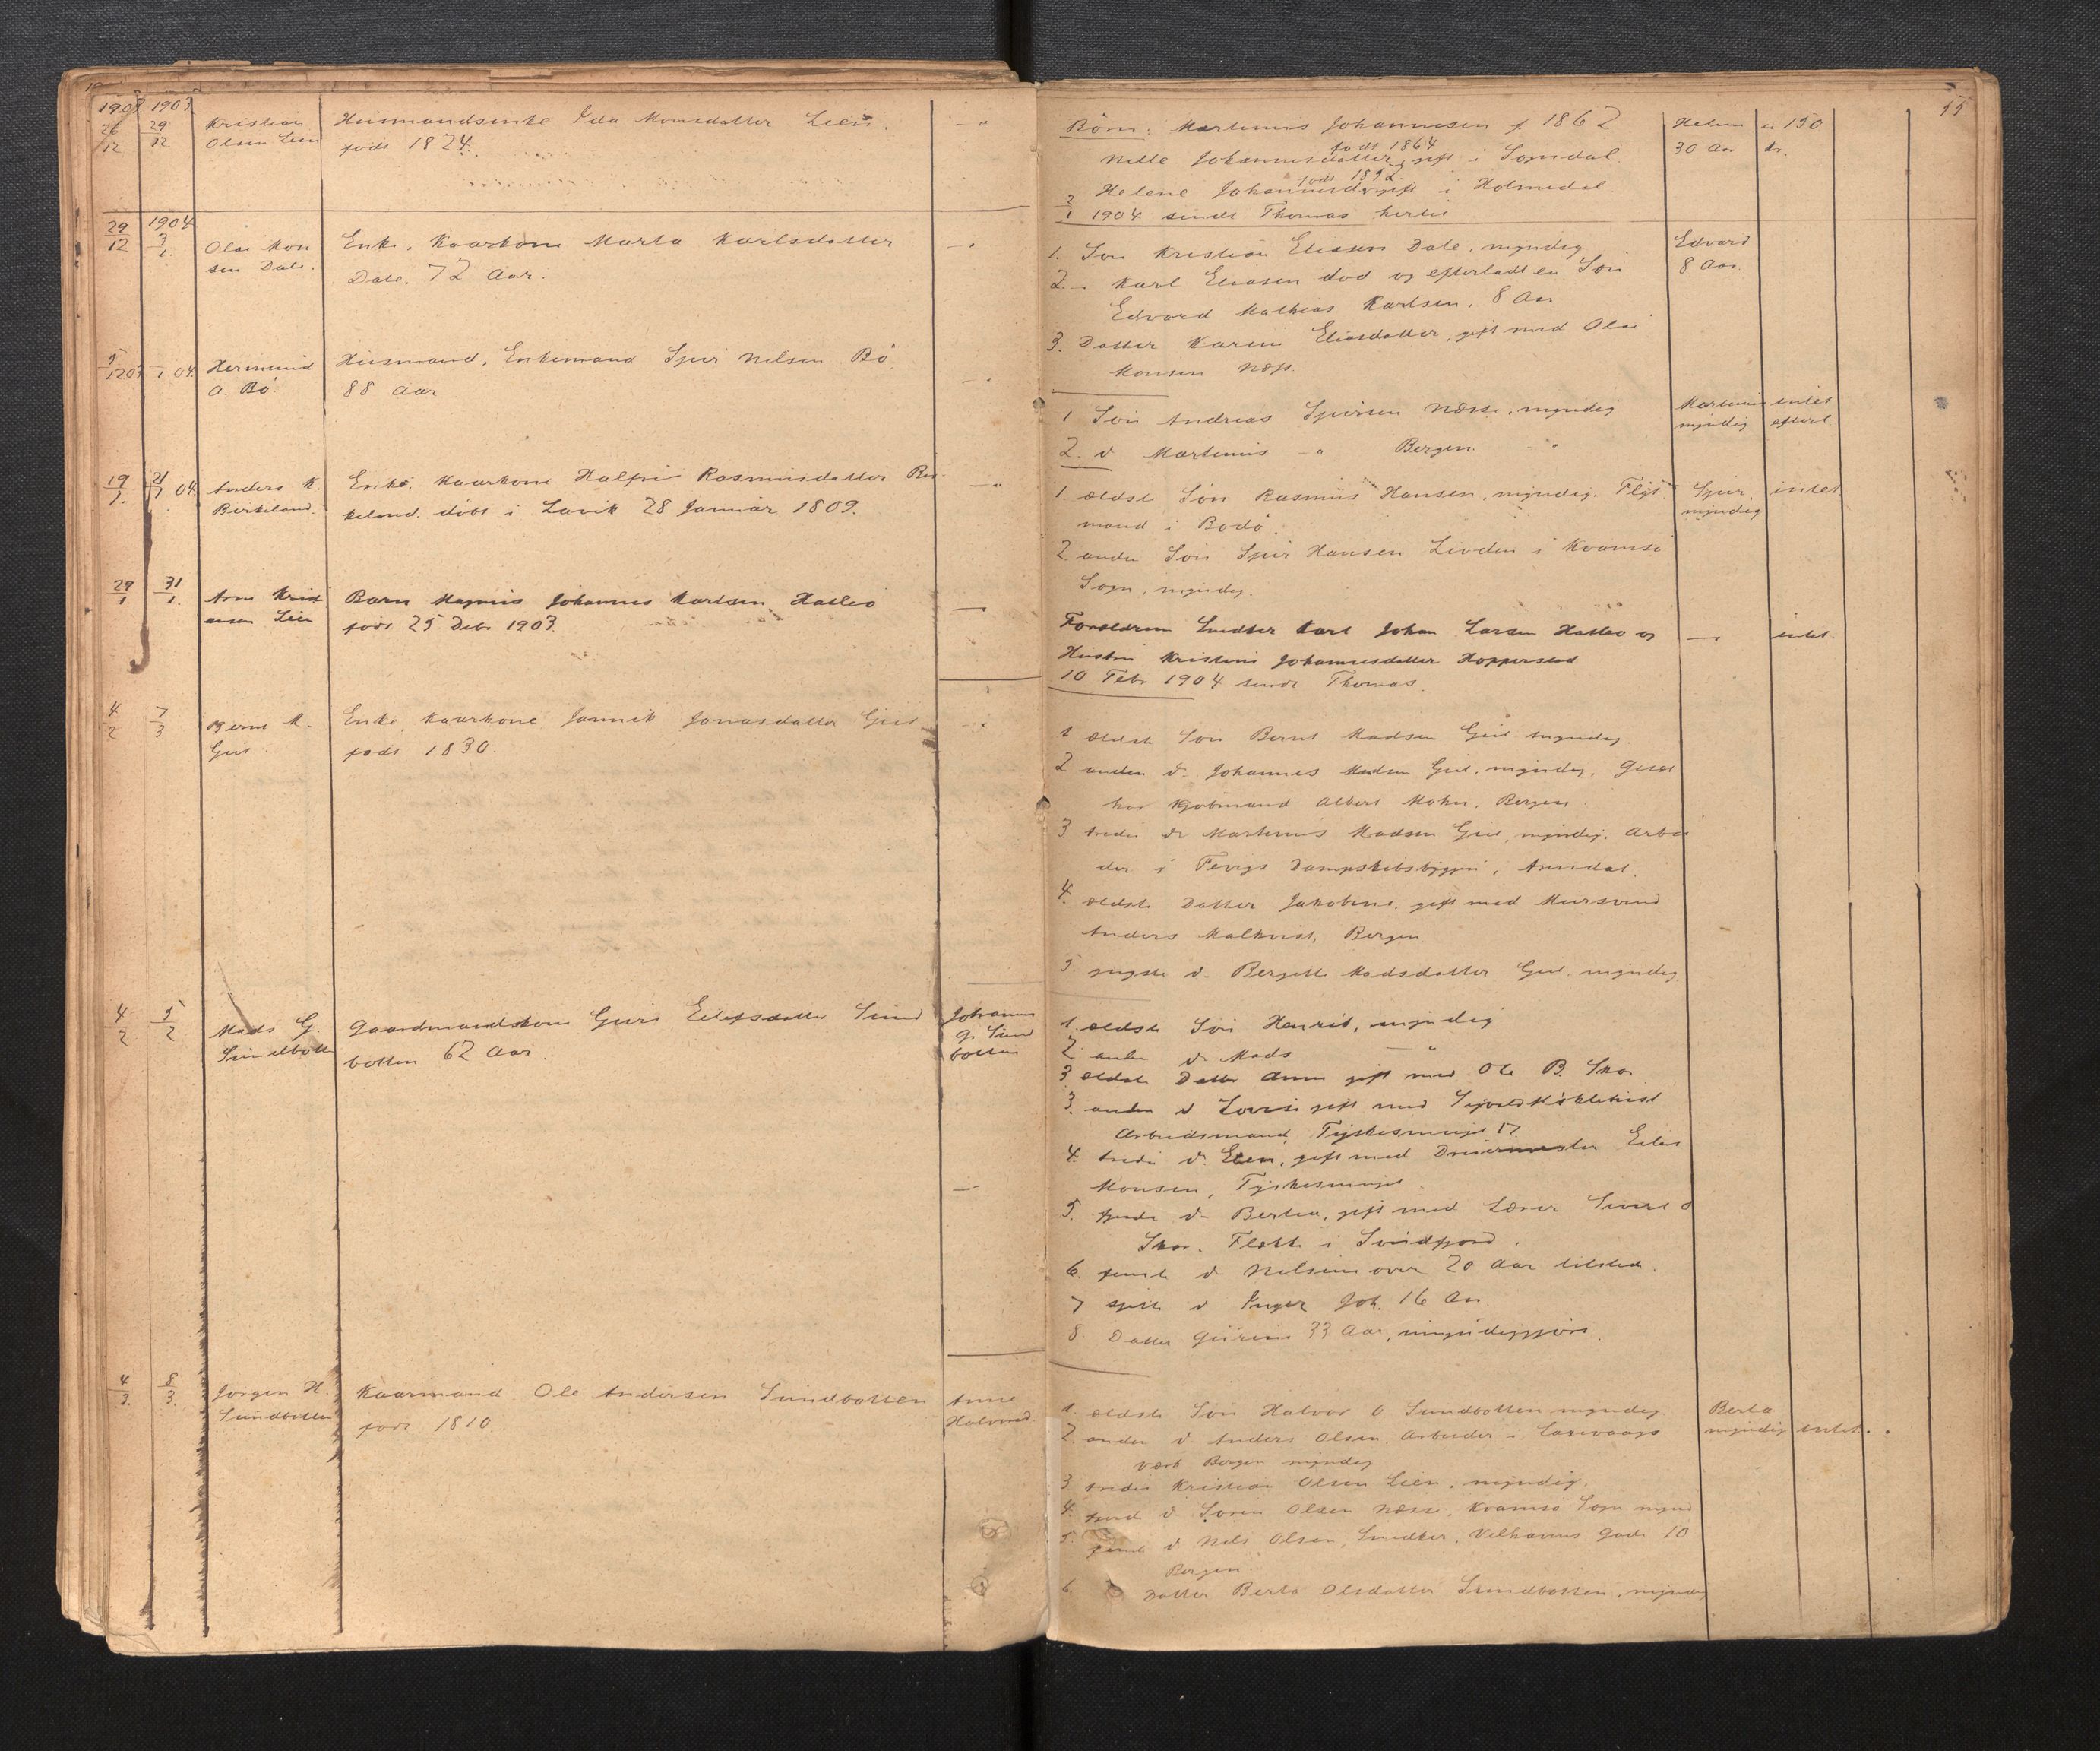 55
1903 1903
26/12 29/12 Kristian Husmandsenke Ida Monsdatter Lien.
Olsen Lien født 1824.
Børn: Martinus Johannesen f. 1862 Helene 150
født 1864
Nille Johannesdatter, gift i Sogndal 30 Aar kr.
født 1892
Helene Johannesd. gift i Holmedal
2/1 1904 sendt Thomas hertil
29/12 1904 3/1. Olai Mon Enke, Kaarkone Marta Karlsdatter
sen Dale. Dale, 72 Aar.
1. Søn Kristian Eliasen Dale, myndig Edvard
2. " Karl Eliasen død og efterladt en Søn 8 Aar
Edvard Mathias Karlsen, 8 Aar
3. Datter Karen Eliasdatter, gift med Olai
Monsen
5/12 03 /1 04 Hermund Husmand, Enkemand Sjur Nilsen Bø,
A. Bø. 88 Aar
1 Søn Andreas Sjursen Næsse, myndig Martinus intet
2. d Martinus " Bergen " myndig efterl.
19/1. 21/1 04 Anders K. Enke, Kaarkone Rasmusdatter Bir
Birkeland. keland. døbt i Lavik 28 Januar 1809.
1. ældste Søn Rasmus Hansen, myndig. Sjur, intet
mand i Bodø. myndig
2 anden Søn Sjur Hansen i Kvamsø
Sogn, myndig.
29/1 31/1. Arne Krist Barn Magnus Johannes Karlsen Hatlevi
ansen Lien født 25 Debr 1903.
Forældrene Snedker Karl Johan Larsen og — intet.
Hustru Kristine Johannesdatter Hopperstad
10 Febr 1904 sendt Thomas.
4/2 7/3 Bernt M. Enke, Kaarkone Jannik Jonasdatter
født 1830.
1 ældste Søn Bernt Madsen myndig
2 anden d. Johannes Madsen myndig,
hos Kjøbmand Albert Mohn, Bergen.
3 tredie d. Martinus Madsen myndig. Arbei
der i Fevigs Dampskibsbyggeri, Arendal.
4. ældste Datter Jakobine, gift med Mursvend
Anders Malkvist, Bergen
5. yngste d. Bergitte Madsdatter myndig
4/2 5/2 Mads G. Gaardmandskone Guri Eilefsdatter Sund Johannes
Sundbotten botten 62 Aar. G. Sund
botten
1. ældste Søn Henrik, myndig
2. anden d. Mads "
3. ældste Datter Anna gift med Ole B. Skor
3. anden d Lovise gift med
Arbeidsmand, Tyskesmuget 17.
4. tredie d. Elen, gift med Eilert
Monsen, Tyskesmuget.
5. fjerde d. Bertha, gift med Lærer Sivert
Skor. i Sundfjord.
6. femte d Nilsine over 20 Aar tilsted.
7 sjette d Inger Joh. 16 Aar
8. Datter 33 Aar, umyndiggjort.
4/3. 8/3. Jørgen H. Kaarmand Ole Andersen Sundbotten Anne
Sundbotten født 1810. Halvorsd
1. ældste Søn Halvor O Sundbotten myndig Berta
2 anden d Anders Olsen Arbeider i Laxevaags myndig intet.
værk Bergen myndig
3. tredie Kristian Olsen Lien, myndig.
4. fjerd d Søren Olsen Næsse, Kvamsø Sogn mynd
5. femte d Nils Olsen, Snedker, Velhavens Gade 10
Bergen.
6. Datter Berta Olsdatter Sundbotten, myndig